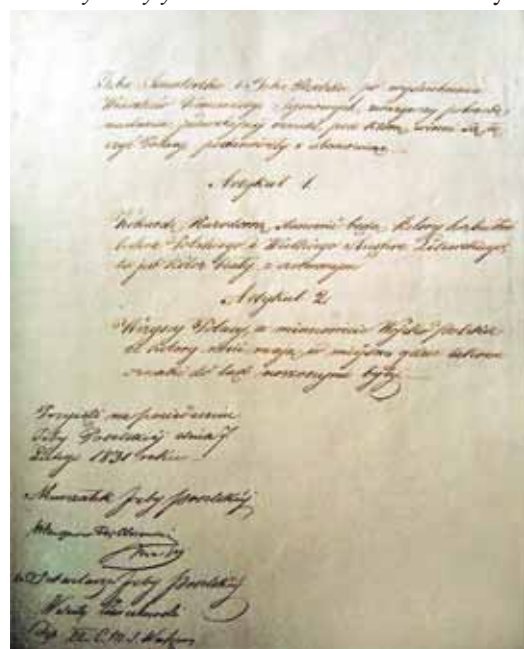 Izba Senatorska i Izba Poselska po wysłuchaniu
Wniosków Kommissyy Seymowych, zważywszy potrzebę
nadania jednostayney oznaki, pod którą winni się łą-
czyć Polacy, postanowiły i stanowią:
Artykuł 1.
Kokardę Narodową stanowić będą kolory herbu Kró-
lestwa Polskiego i Wielkiego Xięstwa Litewskiego,
to jest kolor biały z czerwonym.
Artykuł 2
Wszyscy Polacy, a mianowicie Woysko Polskie
te kolory nosić mają w mieyscu gdzie takowe
oznaki do tąd noszonymi były.
Przyjęto na posiedzeniu
Izby Poselskiéy dnia 7
Lutego 1831 roku.
Marszałek Izby Poselskiéy
Sekretarz Izby Poselskiéy